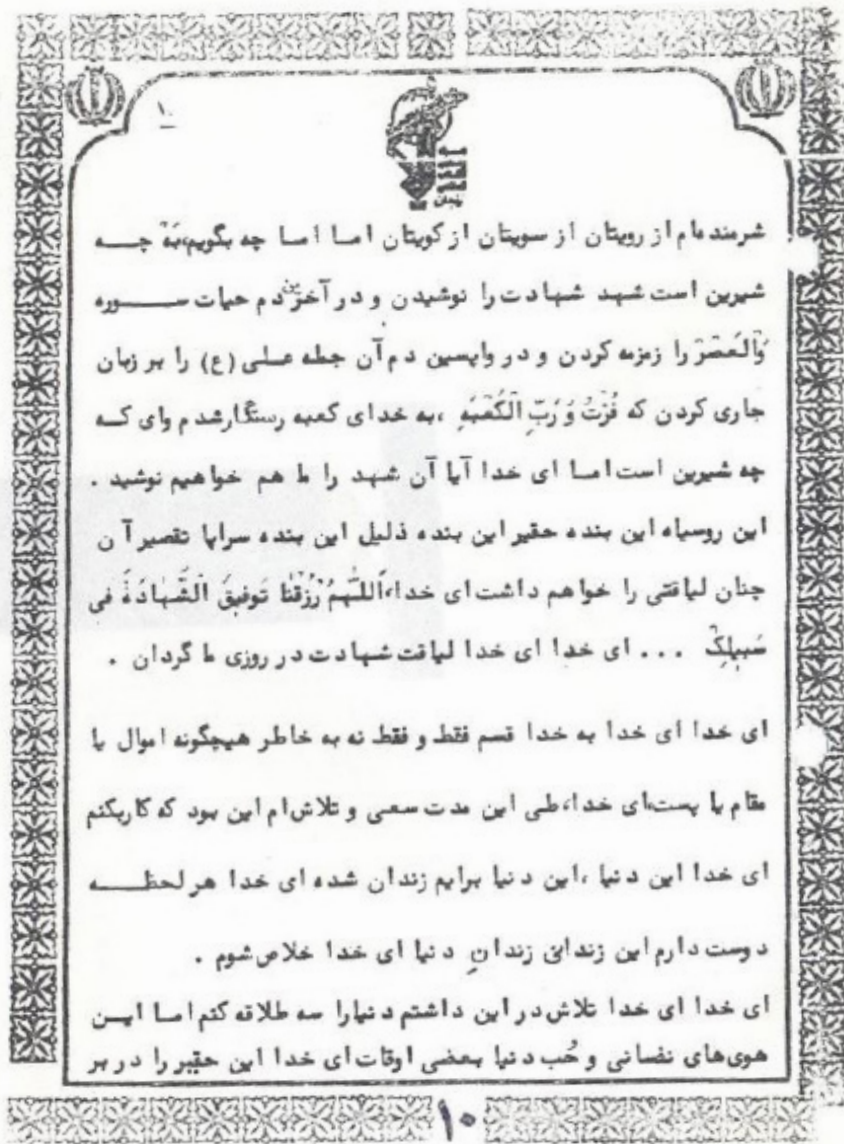 ۱۰
شرمنده‌ام از رویتان از سویتان از کویتان اما اما چه بگویم،بَهْ چـــه
شیرین است شهد شهادت را نوشیدن و در آخرین دم حیات ســـوره
وَالْعَصْرْ را زمزمه کردن و در واپسین دم آن جمله عـلی (ع) را بر زبان
جاری کردن که فُزْتُ وَ رَبِّ الْکَعْبَهِ ،به خدای کعبه رستگار شدم وای کــه
چه شیرین است امـا ای خدا آیا آن شهد را ما هم خواهیم نوشید .
این روسیاه این بنده حقیر این بنده ذلیل این بنده سراپا تقصیر آ ن
چنان لیاقتی را خواهم داشت ای خدا،اَللّهُمَّ رْزُقْنا تَوفیقَ الْشَّهادَةَ فی
سَبیلِکَْ ... ای خدا ای خدا لیاقت شهادت در روزی ما گردان .
ای خدا ای خدا به خدا قسم فقط و فقط نه به خاطر هیچگونه اموال یا
مقام یا پست،ای خدا،طی این مدت سعی و تلاش‌ام این بود که کاریکنم
ای خدا این دنیا ،این دنیا برایم زندان شده ای خدا هر لحظــــه
دوست دارم این زندانیِ زندانِ دنیا ای خدا خلاص شوم .
ای خدا ای خدا تلاش در این داشتم دنیارا سه طلاقه کنم امـا ایــن
هوی‌های نفسانی و حُب دنیا بعضی اوقات ای خدا این حقیر را در بر
۱۰